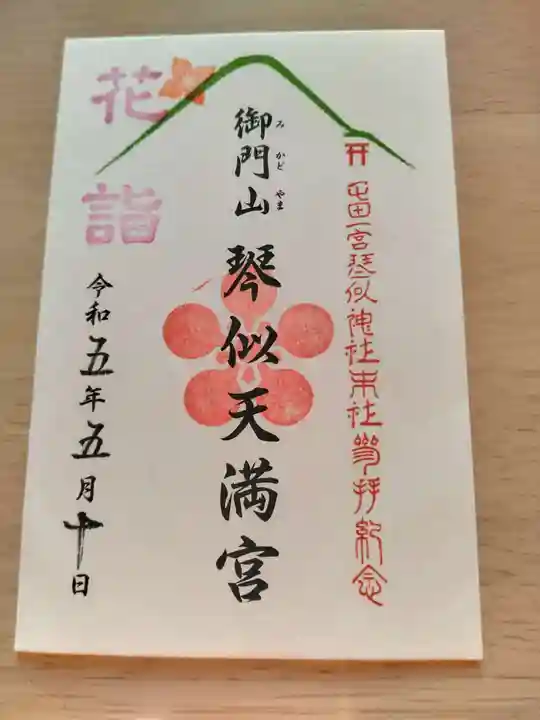 屯田一宮琴似神社末社参拝紀念
御門山 琴似天満宮
みかどやま
花詣
令和五年五月十日